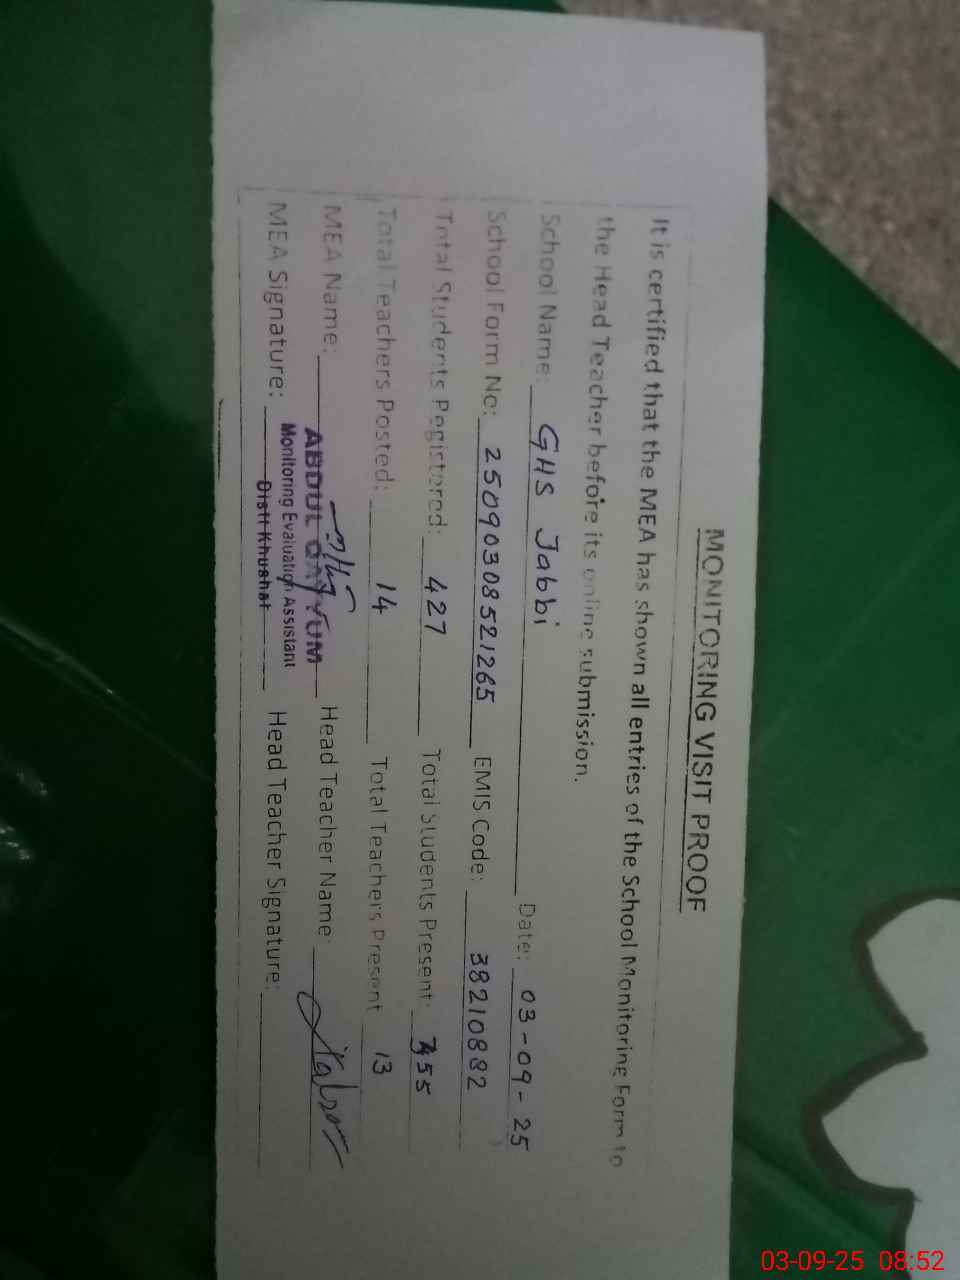 MONITORING VISIT PROOF
It is certified that the MEA has shown all entries of the School Monitoring Form to
the Head Teacher before its online submission.
School Name: GHS Jabbi Date: 03-09-25
School Form No: 25090308521265 EMIS Code: 38210882
Total Students Registered: 427 Total Students Present: 355
Total Teachers Posted: 14 Total Teachers Present 13
MEA Name: ABDUL QAYYUM Head Teacher Name:
Monitoring Evaluation Assistant
MEA Signature: Distt Khushab Head Teacher Signature:
03-09-25 08:52